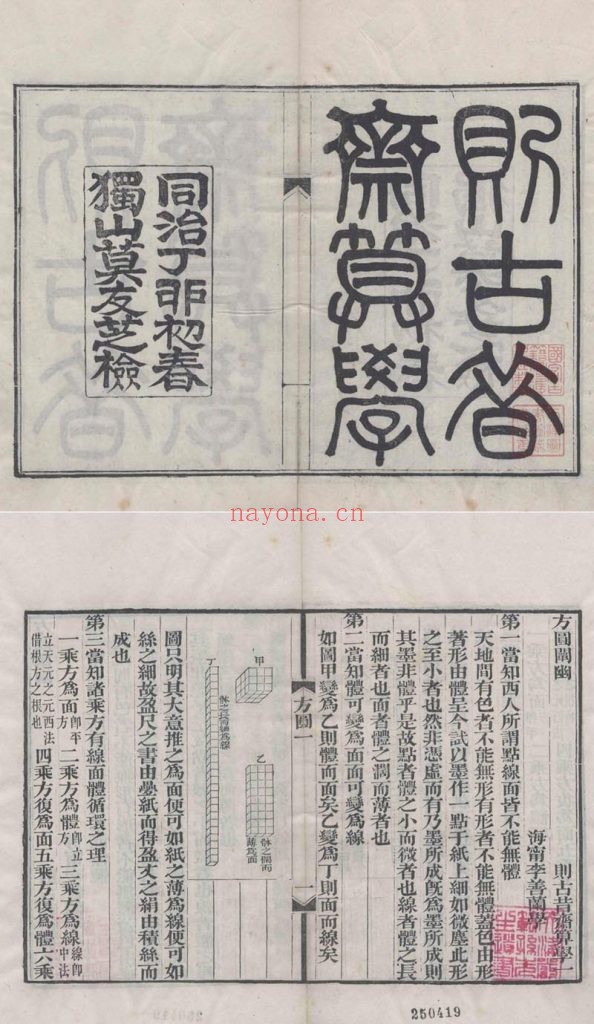 則古昔
齋算學
同治丁卯初春
獨山莫友芝檢
nayona.cn
方圓闡幽
則古昔齋算學一
海甯李善蘭學
第一當知西人所謂點線面皆不能無體
天地間有色者不能無形有形者不能無體蓋色由形
著形由體呈今試以墨作一點于紙上細如微塵此形
之至小者也然非憑虛而有乃墨所成旣為墨所成則
其墨非體乎是故點者體之小而微者也線者體之長
而細者也面者體之濶而薄者也
第二當知體可變為面面可變為線
如圖甲變為乙則體而面矣乙變為丁則面而線矣
方圓一
一
甲
乙
體之濶而
薄為面
丁
體之長而細為線
圖只明其大意推之為面便可如紙之薄為線便可如
絲之細故盈尺之書由疊紙而得盈丈之絹由積絲而
成也
第三當知諸乘方有線面體循環之理
一乘方為面卽平方二乘方為體卽立方三乘方為線線卽中法
立天元之元西法
借根方之根也四乘方復為面五乘方復為體六乘
250419
250419